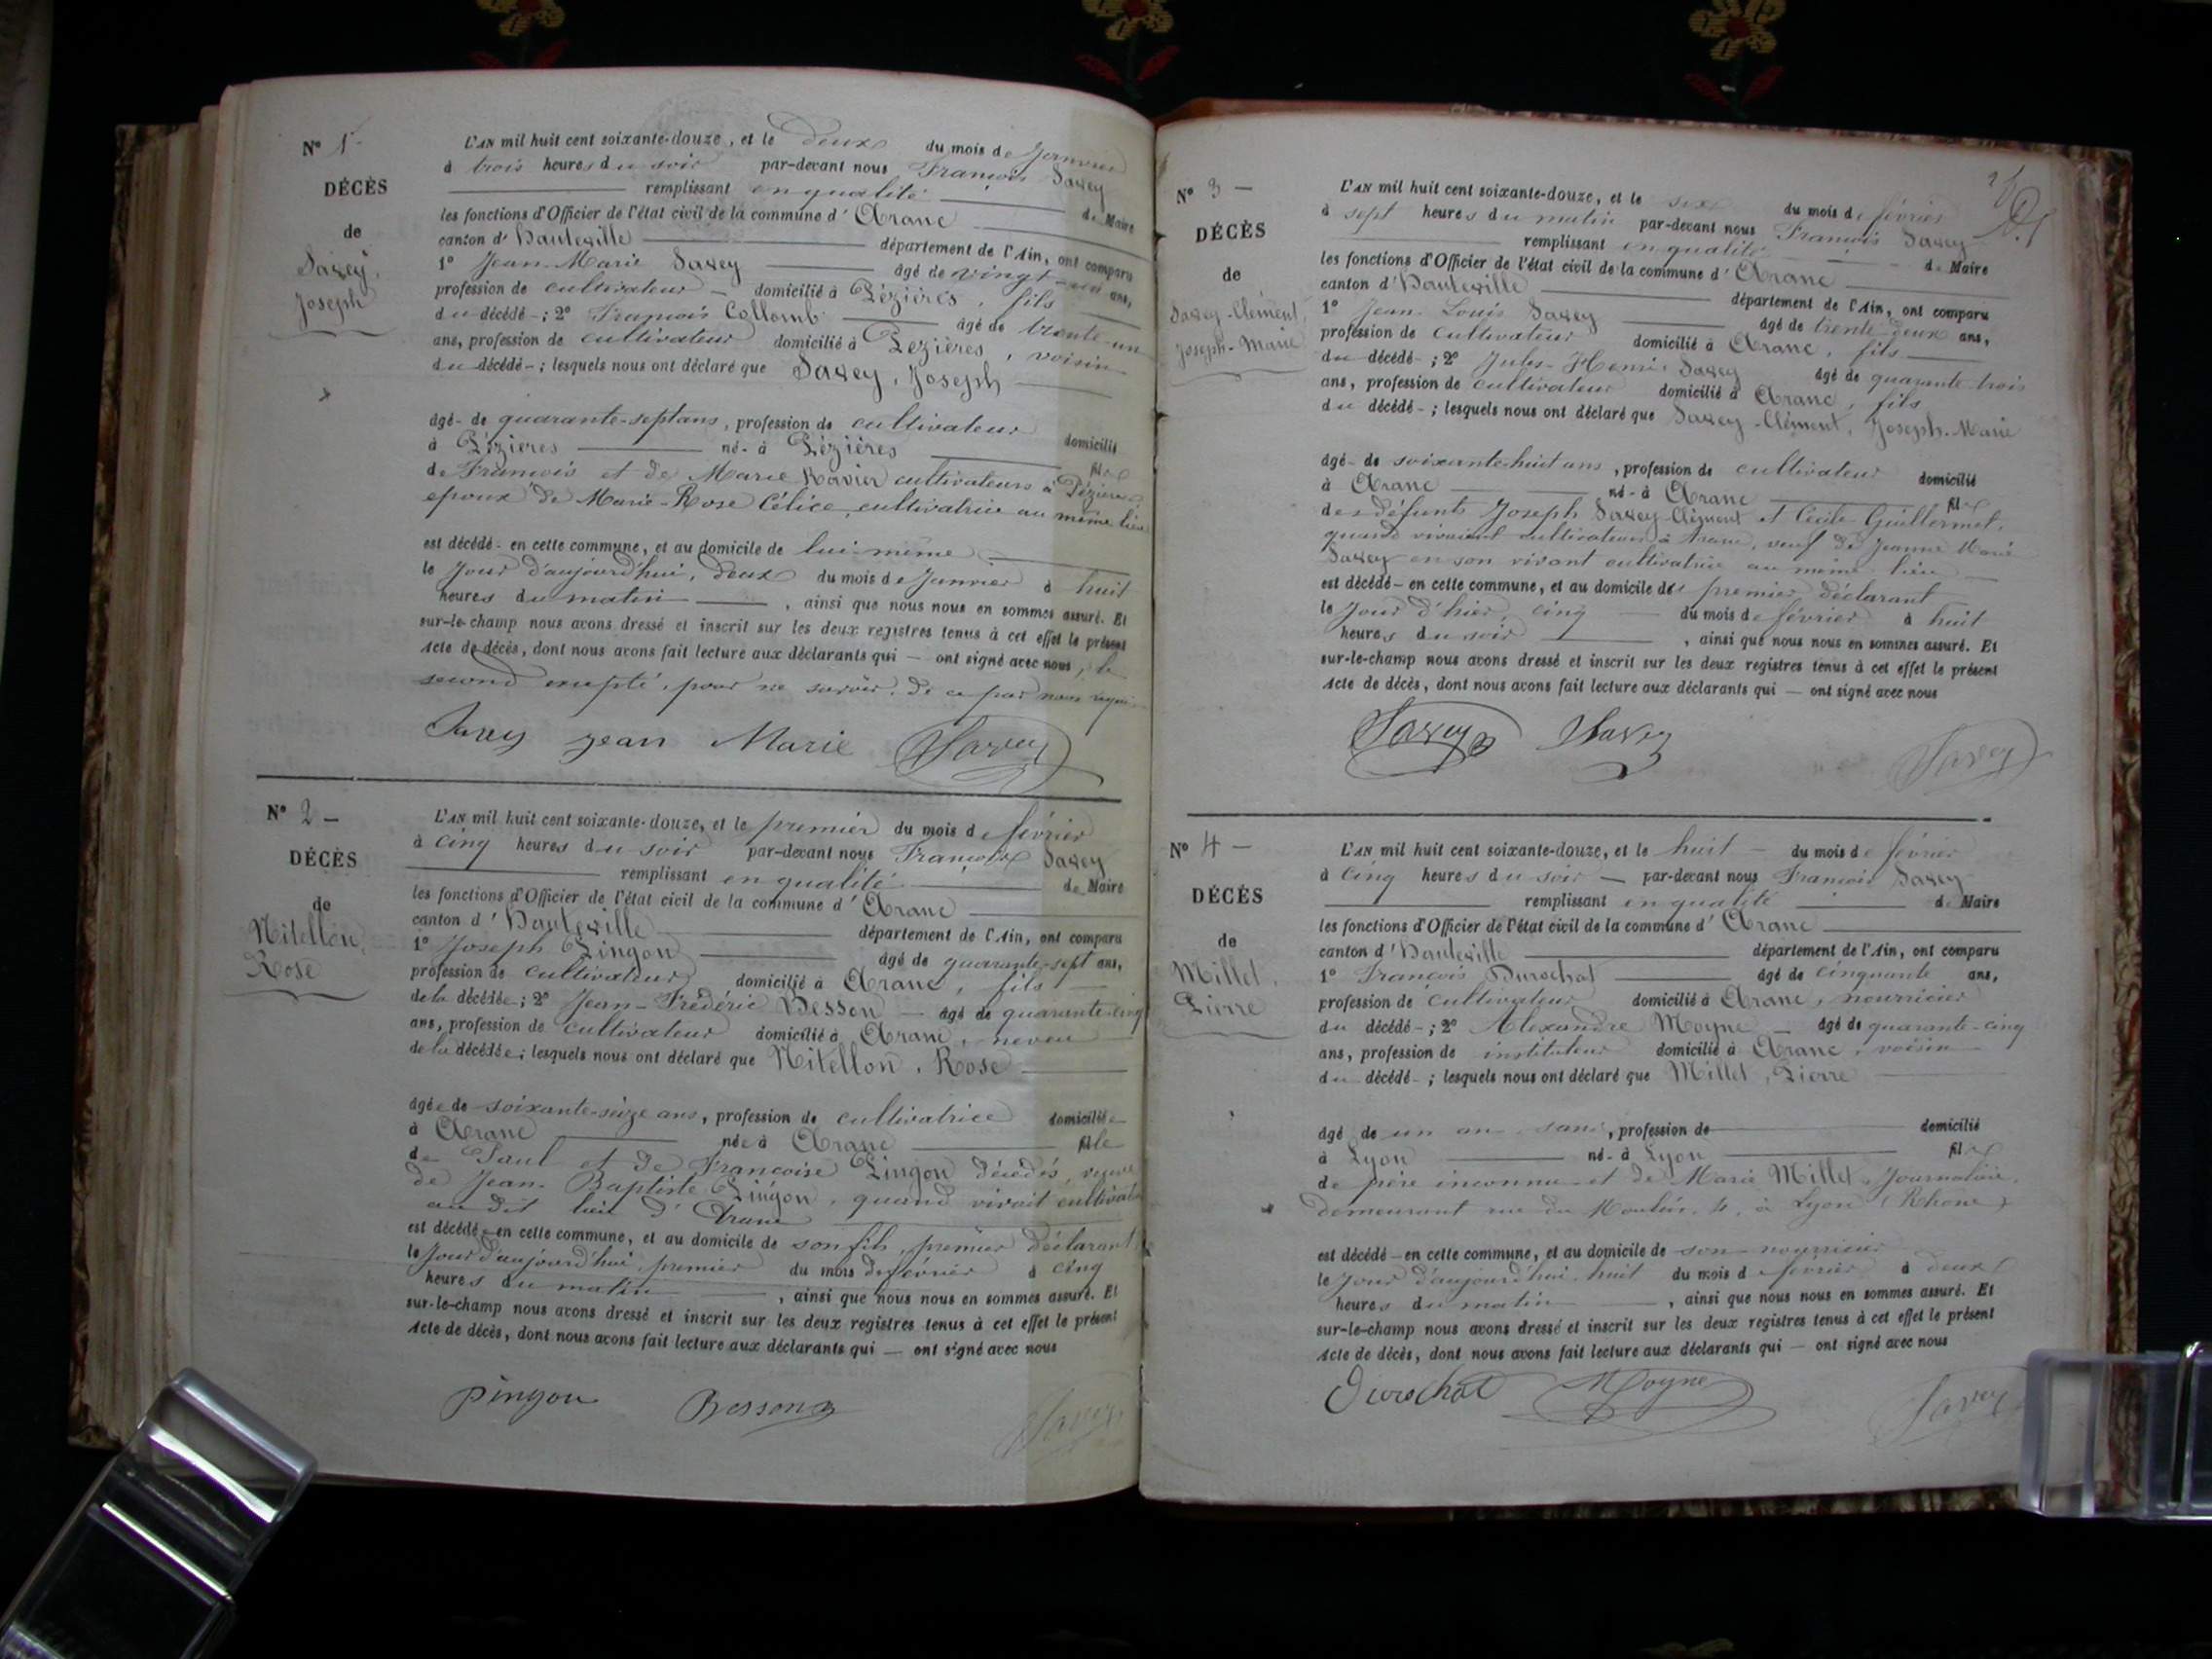 N° 1
DÉCÈS
de
Savey,
Joseph
L'AN mil huit cent soixante-douze, et le deux du mois de Janvier
à trois heures du soir par-devant nous François Savey
remplissant en qualité de Maire
les fonctions d'Officier de l'état civil de la commune d' Aranc
canton d' Hauteville département de l'Ain, ont comparu
1° Jean-Marie Savey âgé de vingt-un ans,
profession de cultivateur domicilié à Pézières, fils
du décédé ; 2° François Collomb âgé de trente-un
ans, profession de cultivateur domicilié à Pézières, voisin
du décédé ; lesquels nous ont déclaré que Savey, Joseph
âgé de quarante-sept ans, profession de cultivateur domicilié
à Pézières né à Pézières fils
de François et de Marie Ravier cultivateurs à Pézières
époux de Marie-Rose Célice, cultivatrice au même lieu
est décédé en cette commune, et au domicile de lui-même
le Jour d'aujourd'hui, deux du mois de Janvier à huit
heures du matin , ainsi que nous nous en sommes assuré. Et
sur-le-champ nous avons dressé et inscrit sur les deux registres tenus à cet effet le présent
Acte de décès, dont nous avons fait lecture aux déclarants qui — ont signé avec nous, le
second excepté, pour ne savoir, de ce par nous requis
Savey jean Marie Savey
N° 2 -
DÉCÈS
de
Nitellon,
Rose
L'AN mil huit cent soixante-douze, et le premier du mois de février
à cinq heures du soir par-devant nous François Savey
remplissant en qualité de Maire
les fonctions d'Officier de l'état civil de la commune d' Aranc
canton d' Hauteville département de l'Ain, ont comparu
1° Joseph Pingon âgé de quarante-sept ans,
profession de cultivateur domicilié à Aranc, fils
de la décédée ; 2° Jean-Frédéric Besson âgé de quarante-cinq
ans, profession de cultivateur domicilié à Aranc, neveu
de la décédée ; lesquels nous ont déclaré que Nitellon, Rose
âgée de soixante-seize ans, profession de cultivatrice domiciliée
à Aranc née à Aranc fille
de Paul et de Françoise Pingon décédés, veuve
de Jean-Baptiste Pingon, quand vivait cultivateur
au dit lieu d' Aranc
est décédée en cette commune, et au domicile de son fils, premier déclarant
le Jour d'aujourd'hui, premier du mois de février à cinq
heures du matin , ainsi que nous nous en sommes assuré. Et
sur-le-champ nous avons dressé et inscrit sur les deux registres tenus à cet effet le présent
Acte de décès, dont nous avons fait lecture aux déclarants qui — ont signé avec nous
pingon Besson Savey
N° 3 -
DÉCÈS
de
Savey-Clément,
Joseph-Marie
L'AN mil huit cent soixante-douze, et le six du mois de février
à sept heures du matin par-devant nous François Savey
remplissant en qualité de Maire
les fonctions d'Officier de l'état civil de la commune d' Aranc
canton d' Hauteville département de l'Ain, ont comparu
1° Jean-Louis Savey âgé de trente deux ans,
profession de cultivateur domicilié à Aranc, fils
du décédé ; 2° Jules-Henri Savey âgé de quarante trois
ans, profession de cultivateur domicilié à Aranc, fils
du décédé ; lesquels nous ont déclaré que Savey-Clément, Joseph-Marie
âgé de soixante-huit ans, profession de cultivateur domicilié
à Aranc né à Aranc fils
des défunts Joseph Savey-Clément et Cécile Guillermet,
quand vivaient cultivateurs à Aranc, veuf de Jeanne Marie
Savey en son vivant cultivatrice au même lieu
est décédé en cette commune, et au domicile du premier déclarant
le Jour d'hier, cinq du mois de février à huit
heures du soir , ainsi que nous nous en sommes assuré. Et
sur-le-champ nous avons dressé et inscrit sur les deux registres tenus à cet effet le présent
Acte de décès, dont nous avons fait lecture aux déclarants qui — ont signé avec nous
Savey Savey Savey
N° 4 -
DÉCÈS
de
Millet,
Pierre
L'AN mil huit cent soixante-douze, et le huit du mois de février
à cinq heures du soir par-devant nous François Savey
remplissant en qualité de Maire
les fonctions d'Officier de l'état civil de la commune d' Aranc
canton d' Hauteville département de l'Ain, ont comparu
1° François Durochat âgé de cinquante ans,
profession de cultivateur domicilié à Aranc, nourricier
du décédé ; 2° Alexandre Moyne âgé de quarante-cinq
ans, profession de instituteur domicilié à Aranc, voisin
du décédé ; lesquels nous ont déclaré que Millet, Pierre
âgé de un an sans, profession de domicilié
à Lyon né à Lyon fils
de père inconnu et de Marie Millet, Journalière,
demeurant rue du Moulin, 4, à Lyon (Rhône)
est décédé en cette commune, et au domicile de son nourricier
le Jour d'aujourd'hui huit du mois de février à deux
heures du matin , ainsi que nous nous en sommes assuré. Et
sur-le-champ nous avons dressé et inscrit sur les deux registres tenus à cet effet le présent
Acte de décès, dont nous avons fait lecture aux déclarants qui — ont signé avec nous
Durochat Moyne Savey